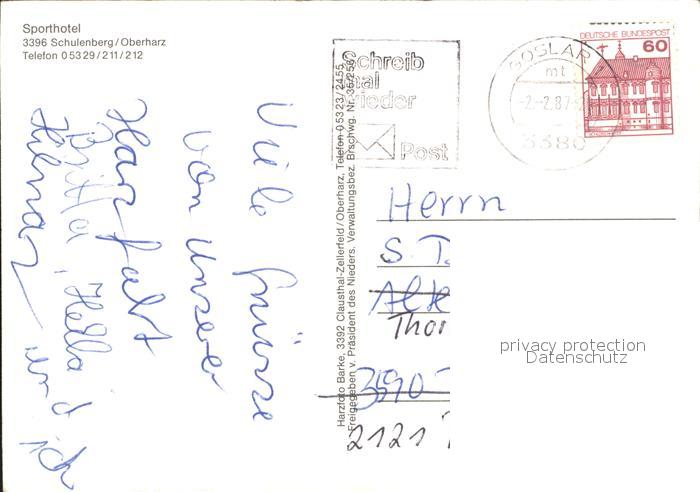 Sporthotel
3396 Schulenberg/Oberharz
Telefon 05329/211/212
Viele Grüsse
von unserer
Harzfahrt
Britta, Hella
Hilmar und ich
Harzfoto Barke, 3392 Clausthal-Zellerfeld/Oberharz, Telefon 05323/2455
Freigegeben v. Präsident des Nieders. Verwaltungsbez. Brschwg. Nr. 35/256
Schreib
mal
wieder
Post
GOSLAR
mt
-2.-2.87-
3380
DEUTSCHE BUNDESPOST
60
Herrn
S. T.
Alte
Thor
3590
2121
privacy protection
Datenschutz